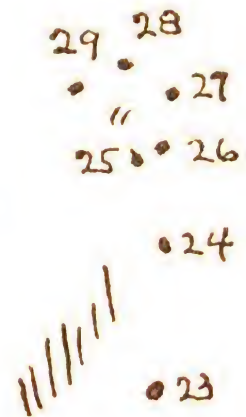 28
29
27
25 26
24
23